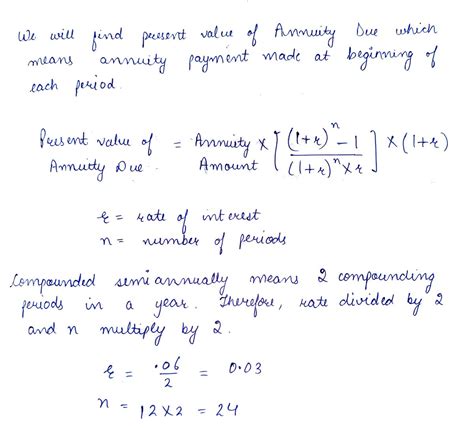 We will find present value of Annuity Due which
means annuity payment made at beginning of
each period.
Present value of Annuity Due = Annuity Amount × [ (1+r)^n - 1 / (1+r)^n × r ] × (1+r)
r = rate of interest
n = number of periods
Compounded semiannually means 2 compounding
periods in a year. Therefore, rate divided by 2
and n multiply by 2.
r = .06 / 2 = 0.03
n = 12 × 2 = 24